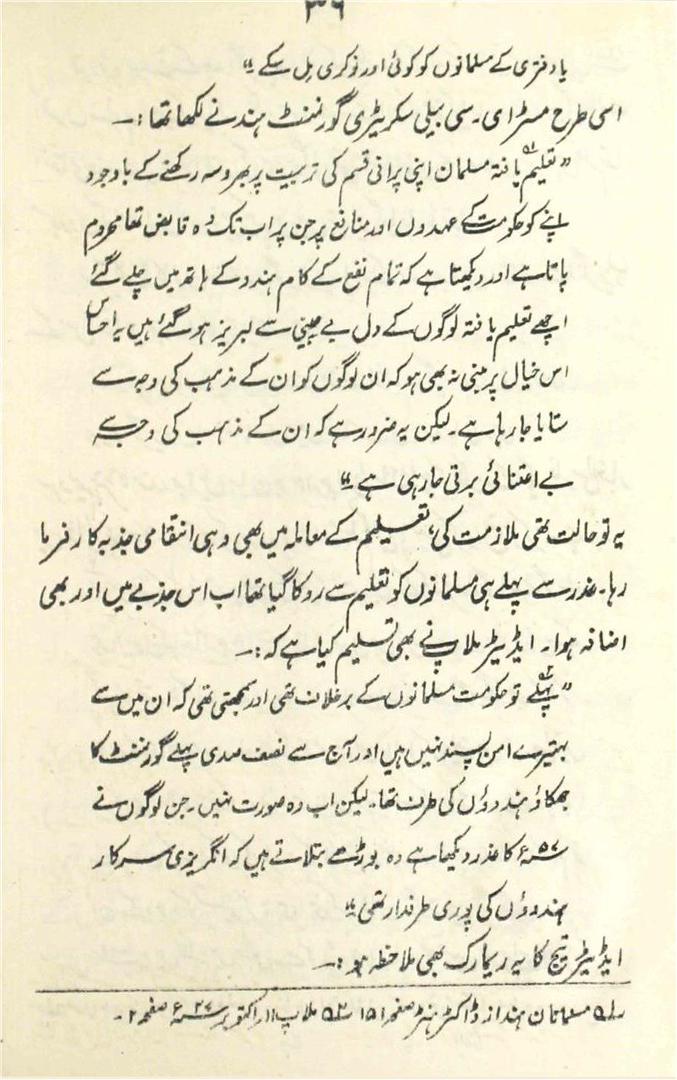 ۳۶
یا دفتری کے مسلمانوں کو کوئی اور نوکری مل سکے"
اسی طرح مسٹر ای۔ سی بیلی سکریٹری گورنمنٹ ہند نے لکھا تھا :۔
"تعلیم یافتہ مسلمان اپنی پرانی قسم کی تربیت پر بھروسہ رکھنے کے باوجود
اپنے کو حکومت کے عہدوں اور منافع پر جن پر اب تک وہ قابض تھا محروم
پاتا ہے اور دیکھتا ہے کہ تمام نفع کے کام ہندو کے ہاتھ میں چلے گئے
اچھے تعلیم یافتہ لوگوں کے دل بے چینی سے لبریز ہو گئے ہیں یہ احساس
اس خیال پر مبنی نہ بھی ہو کہ ان لوگوں کو ان کے مذہب کی وجہ سے
ستایا جا رہا ہے۔ لیکن یہ ضرور ہے کہ ان کے مذہب کی وجہ سے
بے اعتنائی برتی جا رہی ہے"
یہ تو حالت تھی ملازمت کی، تعلیم کے معاملہ میں بھی وہی انتقامی جذبہ کار فرما
رہا۔ غدر سے پہلے ہی مسلمانوں کو تعلیم سے روکا گیا تھا اب اس جذبے میں اور بھی
اضافہ ہوا۔ ایڈیٹر ملاپ نے بھی تسلیم کیا ہے کہ :۔
"پہلے تو حکومت مسلمانوں کے برخلاف تھی اور سمجھتی تھی کہ ان میں سے
بہتیرے امن پسند نہیں ہیں اور آج سے نصف صدی پہلے گورنمنٹ کا
جھکاؤ ہندوؤں کی طرف تھا۔ لیکن اب وہ صورت نہیں۔ جن لوگوں نے
۵۷ء کا غدر دیکھا ہے وہ بوڑھے بتلاتے ہیں کہ انگریزی سرکار
ہندوؤں کی پوری طرفدار تھی"
ایڈیٹر تیج کا یہ ریمارک بھی ملاحظہ ہو :۔
لہ مسلمانان ہند از ڈاکٹر ہنٹر صفحہ ۱۵۱ ۲ہ ملاپ ۱۱ اکتوبر ۲۷ء صفحہ ۲۔